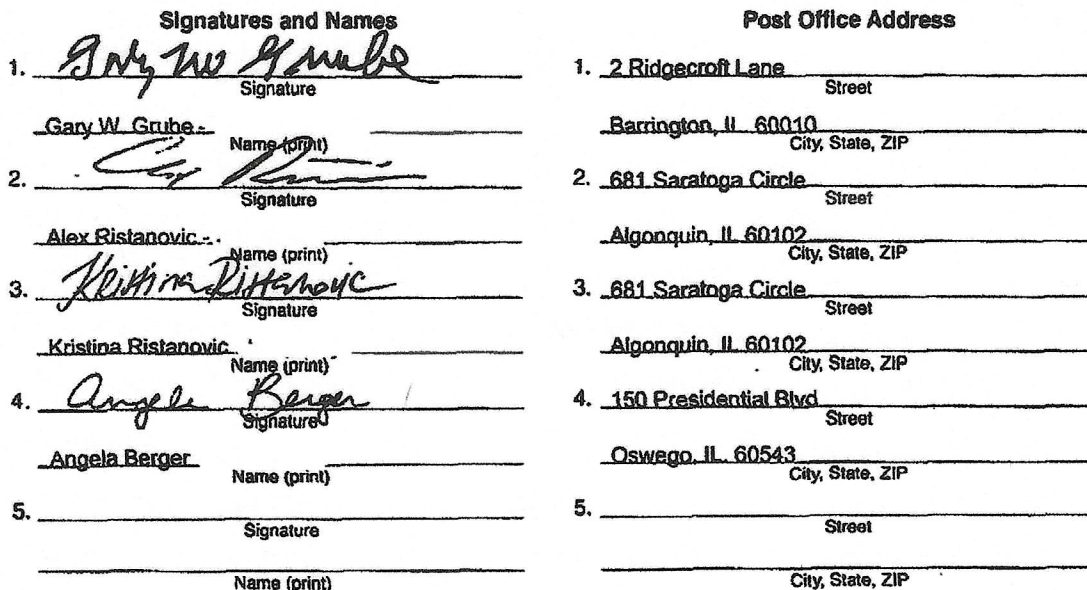 Signatures and Names
1. Gary W Grube
Signature
Gary W. Grube -
Name (print)
2.
Signature
Alex Ristanovic -
Name (print)
3. Kristina Ristanovic
Signature
Kristina Ristanovic
Name (print)
4. Angela Berger
Signature
Angela Berger
Name (print)
5.
Signature
Name (print)
Post Office Address
1. 2 Ridgecroft Lane
Street
Barrington, IL 60010
City, State, ZIP
2. 681 Saratoga Circle
Street
Algonquin, IL 60102
City, State, ZIP
3. 681 Saratoga Circle
Street
Algonquin, IL 60102
City, State, ZIP
4. 150 Presidential Blvd
Street
Oswego, IL 60543
City, State, ZIP
5.
Street
City, State, ZIP